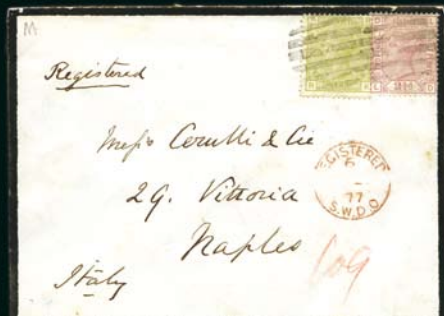 M
Registered
Mess<sup>rs</sup> Cerulli & Cie
29. Vittoria
Naples
Italy
REGISTERED
6
77
S.W.D.O